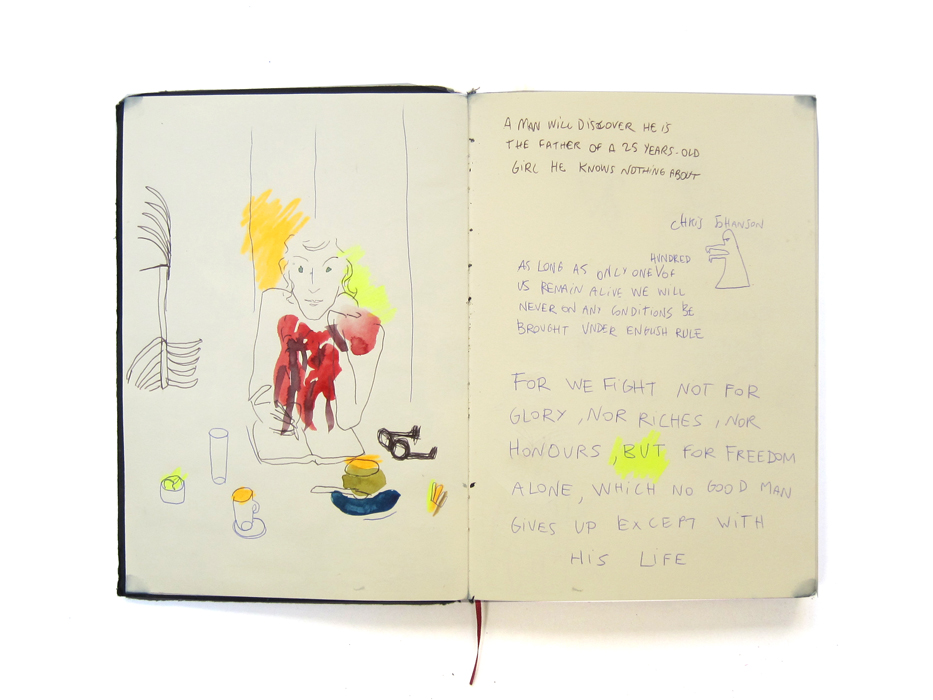 A MAN WILL DISCOVER HE IS
THE FATHER OF A 25 YEARS-OLD
GIRL HE KNOWS NOTHING ABOUT
CHRIS JOHANSON
HUNDRED
AS LONG AS ONLY ONE V OF
US REMAIN ALIVE WE WILL
NEVER ON ANY CONDITIONS BE
BROUGHT UNDER ENGLISH RULE
FOR WE FIGHT NOT FOR
GLORY, NOR RICHES, NOR
HONOURS, BUT FOR FREEDOM
ALONE, WHICH NO GOOD MAN
GIVES UP EXCEPT WITH
HIS LIFE